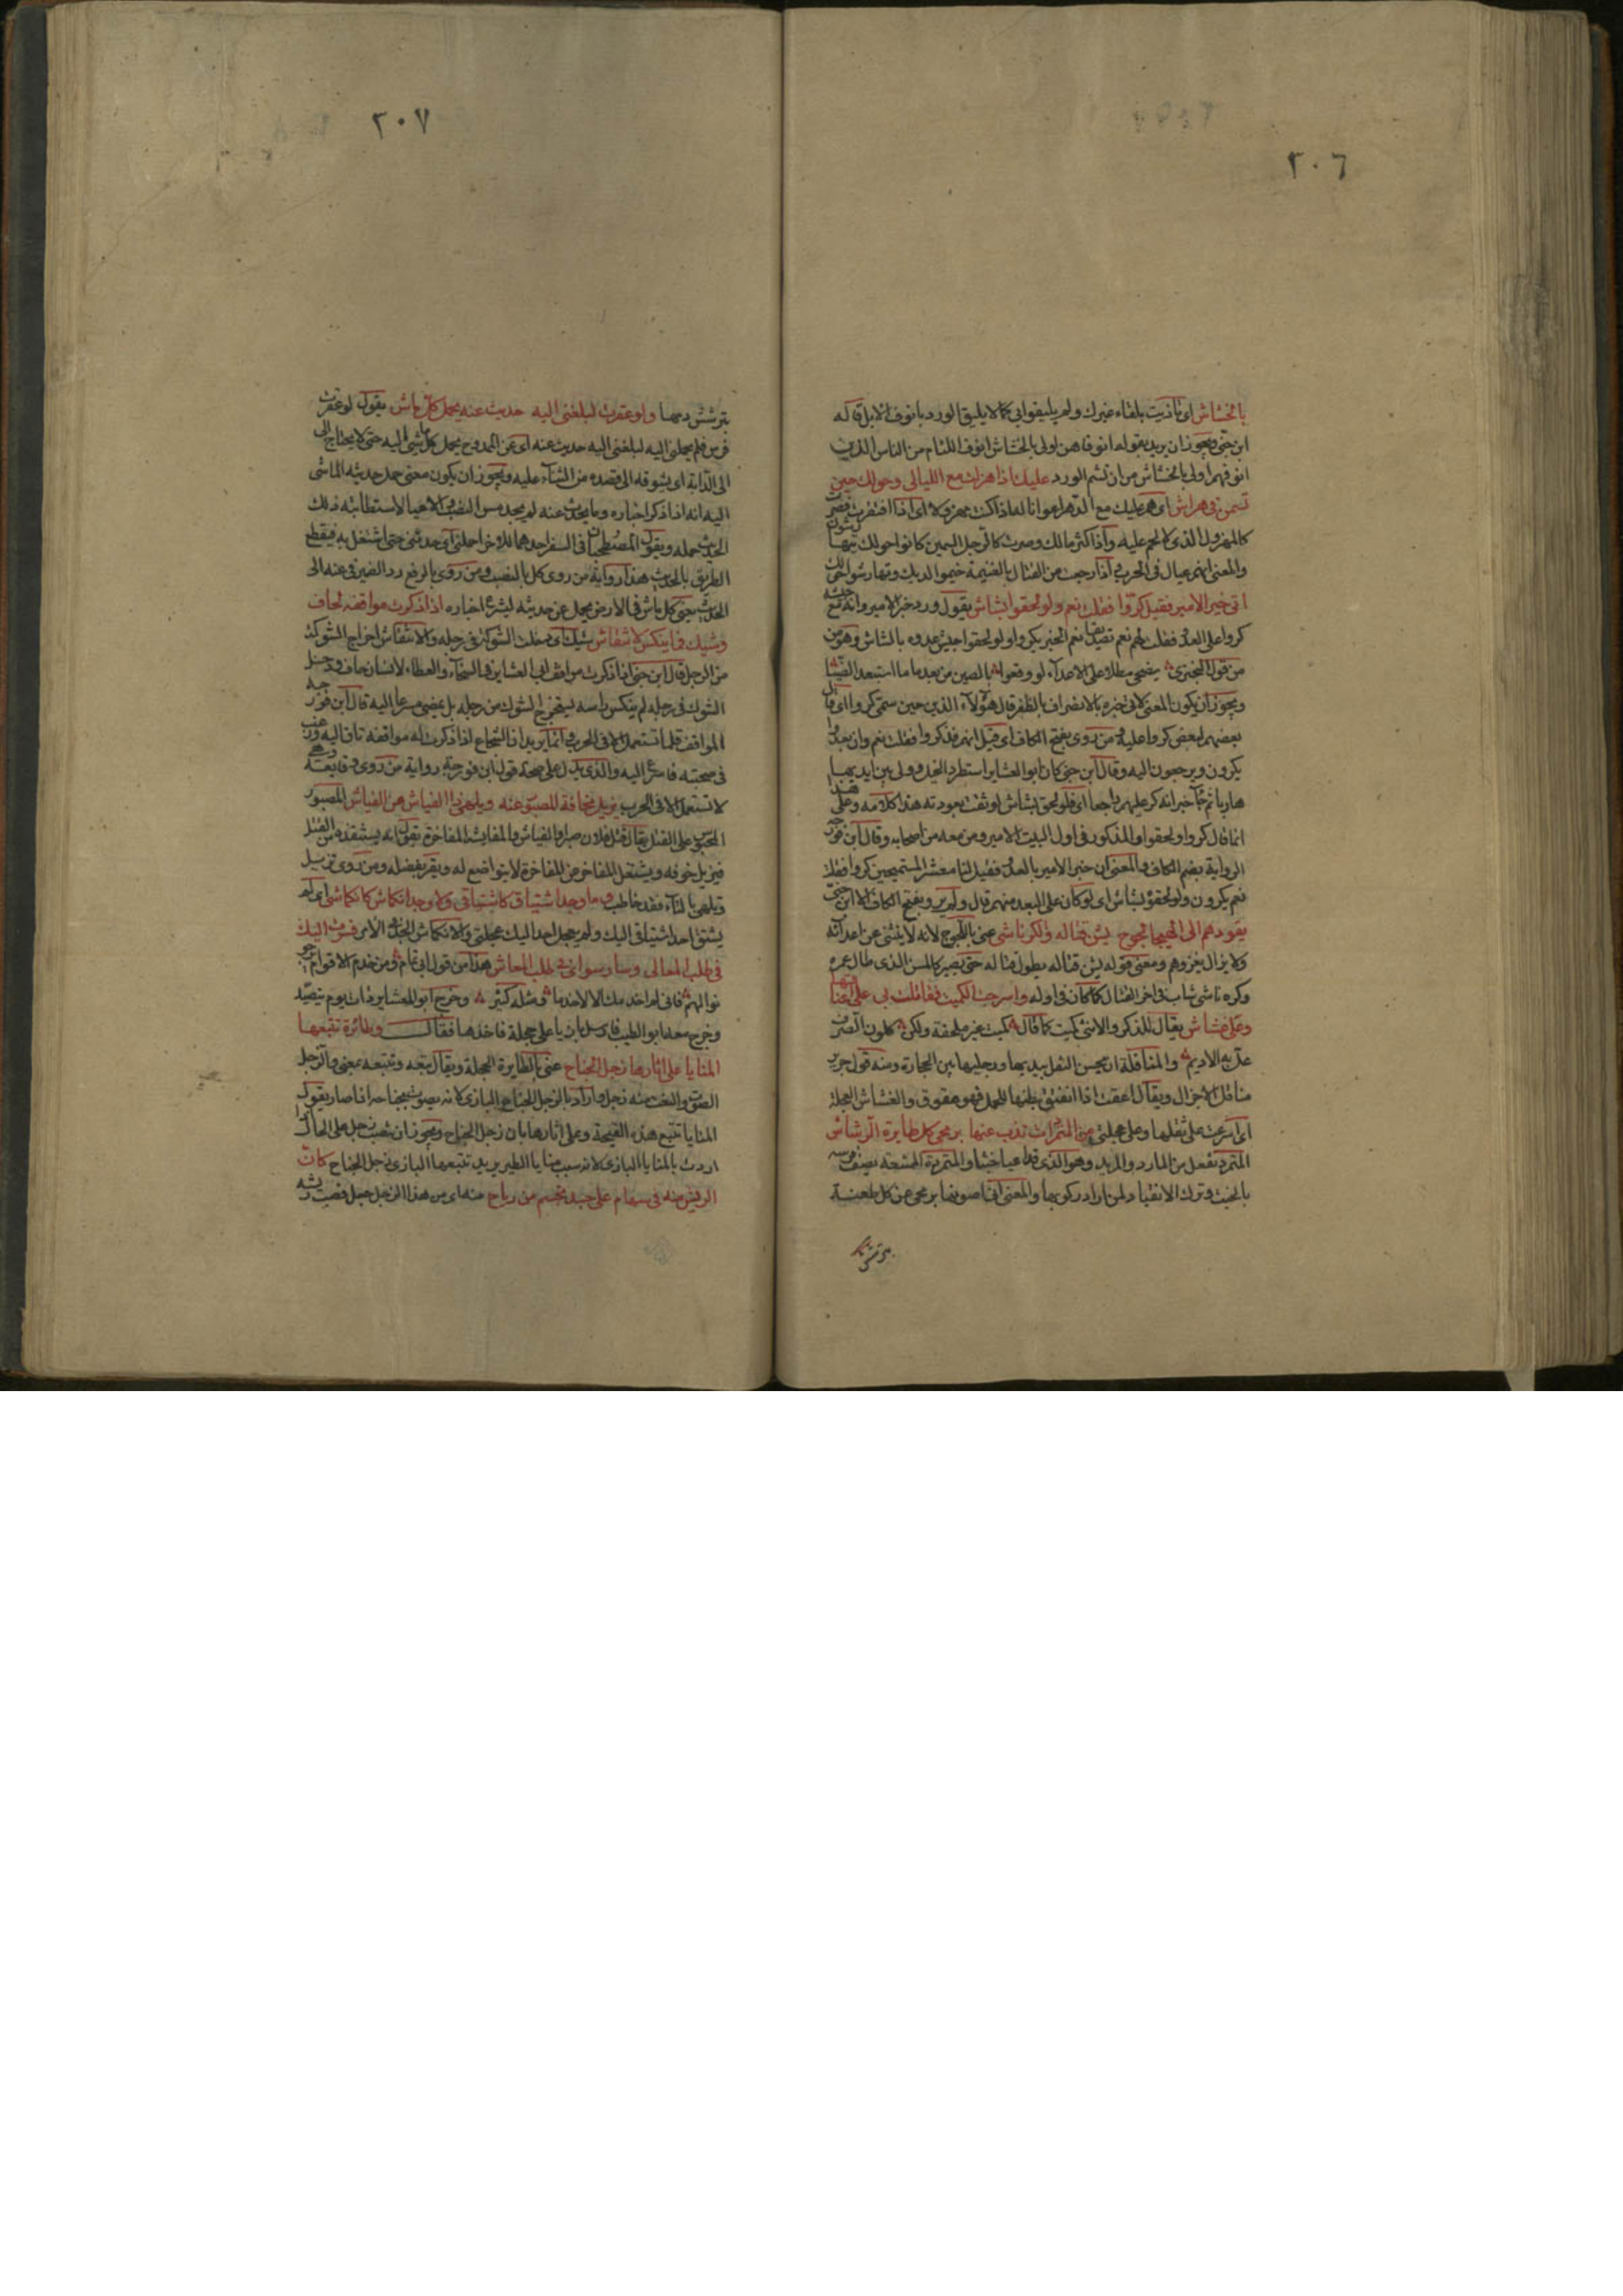 ٢٠٦
بالخشاش اى تاذيت بلقاء غيرك ولم يليقوا بى كما لا يليق الورد بانوف الابل قاله
ابن جنى ويجوز ان يريد بقوله انوفا هن اولى بالخشاش انوف اللئام من الناس الذين
انوفهم اولى بالخشاش من ان تشم الورد عليك اذا هزلت مع الليالى وحولك حين
تسمن فى هراش اى هم عليك مع الدهر اعوانا له اذا كنت مهزولا اى اذا افتقرت فصرت
كالمهزول الذى لا لحم عليه واذا كثر مالك وصرت كالرجل السمين كانوا حولك يتهارشون
والمعنى انهم عيال فى الحرب واذا رجعت من القتال بالغنيمة خيموا لديك وتهارشوا حولك
اتى خبر الامير فقيل كروا فقلت نعم ولو لحقوا بشاش يقول ورد خبر الامير وانه مع
كروا على العدو فقلت لهم نعم تصديقا نعم الخبر يكر ولو لحقوا جيش عدوه بالشاش وهو من
من قول البحترى يضحى مطلا على الاعداء لو وقعوا بالصين من بعدها ما استبعد الصينا
ويجوز ان يكون المعنى لاتى خبره بالانصراف بالظفر قال هؤلاء الذين حين سمتى كروا اى قال
بعضهم لبعض كروا عليه ومن روى بفتح الكاف اى قيل انهم قد كروا فقلت نعم وان بعدوا
يكرون ويرجعون اليه وقال ابن جنى كان ابو العشاير استطرد الخيل وولى بين ايديهم
هاربا ثم جا خبر انه كر عليهم راجعا اى فلو لحق بشاش لوثقت بعودته هذا كلامه وعلى هذا
انما قال كروا ولحقوا والمذكور فى اول البيت الامير ومن معه من اصحابه وقال ابن فورجه
الرواية بضم الكاف والمعنى ان خبر الامير بالعدو فقيل لنا معشر المستميحين كروا فقلت
نعم يكرون ولو لحقوا بشاش اى لو كان على البعد منهم قال ولم يرو بفتح الكاف الا ابن جنى
يقودهم الى الهيجا لجوج يسن قتاله والكر ناشى عنى باللجوج لانه لا ينثنى عن اعدائه
ولا يزال يغزوهم ومعنى قوله يسن قتاله يطول قتاله حتى يصير كالمسن الذى طال عمره
وكره ناشى شاب فى اخر القتال كما كان فى اوله واسرجت الكميت فناقلت بى على اعقاقها
وعلى غشاش يقال للذكر والانثى كميت كما قال كميت غير محلفة ولكن كلون الصرف
عل به الاديم والمناقلة ان يحسن النقل بيديها ورجليها بين الحجارة ومنه قول جرير
مناقل الاجرال ويقال اعقت اذا انفتق بطنها للحمل فهو عقوق والغشاش العجلة
اى اسرعت على ثقلها وعلى عجلتى من المتمردات تذب عنها برمحى كل طايرة الرشاش
المتمرد تفعل من المارد والمريد وهو الذى قد اعيا خبثا والمتمردة الممتنعة يصف فرسه
بالخبث وترك الانقياد لمن اراد ركوبها والمعنى انى اصونها برمحى عن كل طعنة
٢٠٧
يترشش دمها ولو عقرت لبلغنى اليه حديث عنه يحمل كل ماش يقول لو عقرت
فرس فلم يحملنى اليه لبلغنى اليه حديث عنه اى عن الممدوح يحمل كل ماشى اليه حتى لا يحتاج الى
الى الدابة اى يشوقه الى قصده من الثناء عليه ويجوز ان يكون معنى حمل حديثه الماشى
اليه انه اذا ذكر اخباره وما يحدث عنه لم يجد مس النصب والاعيا لاستطابته ذلك
الحديث حمله ويقول المصطحبان فى السفر احدهما للاخر احملنى اى حدثنى حتى اشتغل به فيقطع
الطريق بالحديث هذا رواية من روى كل بالنصب ومن روى بالرفع رد الضمير فى عنه الى
الحديث يعنى كل ماش فى الارض يحمل عن حديثه لبشرى اخباره اذا ذكرت مواقفه لحاف
وشيك فما ينكس لانتقاش شيك اى دخلت الشوكة فى رجله والانتقاش اخراج الشوكة
من الرجل قال ابن جنى اذا ذكرت مواقف ابى العشاير فى السخاء والعطاء لانسان حاف ودخل
الشوك فى رجله لم ينكس راسه ليخرج الشوك من رجله بل يمضى مسرعا اليه قال ابن فورجه
المواقف قلما تستعمل الا فى الحرب وانما يريد ان الشجاع اذا ذكرت له مواقفه تاق اليه ورغب
فى صحبته فاسرع اليه والذى يدل على صحة قول ابن فورجه رواية من روى وقايعه
لا تستعمل الا فى الحرب يزيل مخافة المصبور عنه ويلهى ذا الفياش عن الفياش المصبور
المحبوس على القتل يقال قتل فلان صبرا والفياش والمفايشة المفاخرة يقول انه يستنقذه من القتل
فيزيل خوفه ويشتغل المفاخر عن المفاخرة لانه يتواضع له ويقر بفضله ومن روى تزيل
وتلهى بالتاء فقد خاطب وما وجد اشتياق كاشتياقى ولا وجد انكماش كانكماشى اى لم
يشتق احد اشتياقى اليك ولم يعجل احد اليك عجلتى والانكماش الجد فى الامر فسرت اليك
فى طلب المعالى وسار سواى فى طلب المعاش هذا من قول ابى تمام ومن خدم الاقوام يرجو
نوالهم فانى لم اخدمك الا لاخدما ومثله كثير وخرج ابو العشاير ذات يوم يتصيد
وخرج معه ابو الطيب فارسل بازيا على حجلة فاخذها فقال وطائرة تتبعها
المنايا على اثارها زجل الجناح عنى بالطايرة الحجلة ويقال تبعه وتتبعه بمعنى والزجل
الصوت والنعت منه زجل واراد بالزجل الجناح البازى لانه يصوت بجناحه اذا صار يقول
المنايا تتبع هذه القبيحة وعلى اثارها باز زجل الجناح ويجوز ان نصب زجل على الحال اذا
اردت بالمنايا البازى لانه سبب منايا الطير يريد تتبعها البازى زجل الجناح كان
الريش منه فى سهام على جسد تجسم من رياح منه اى من هذا الزجل جعل قصب ريشه